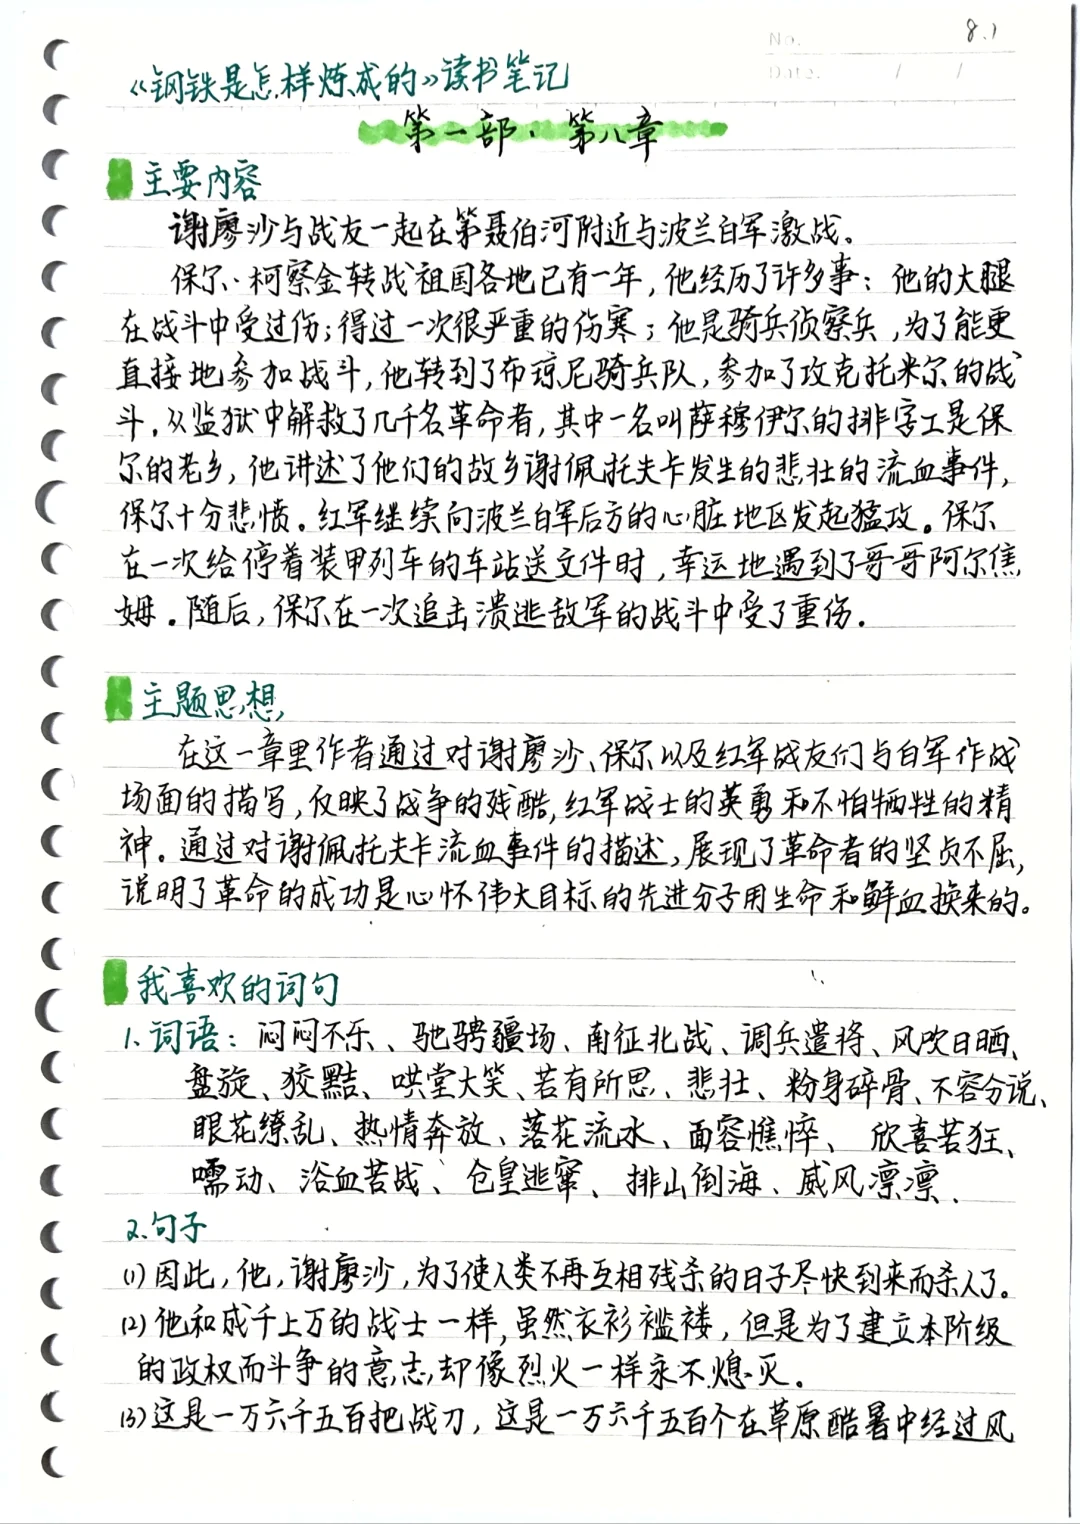 8.1
No.
Date. / /
《钢铁是怎样炼成的》读书笔记
第一部·第八章
主要内容
谢廖沙与战友一起在第聂伯河附近与波兰白军激战。
保尔·柯察金转战祖国各地已有一年，他经历了许多事：他的大腿
在战斗中受过伤；得过一次很严重的伤寒；他是骑兵侦察兵，为了能更
直接地参加战斗，他转到了布琼尼骑兵队，参加了攻克托米尔的战
斗。从监狱中解救了几千名革命者，其中一名叫萨穆伊尔的排字工是保
尔的老乡，他讲述了他们的故乡谢佩托夫卡发生的悲壮的流血事件，
保尔十分悲愤。红军继续向波兰白军后方的心脏地区发起猛攻。保尔
在一次给停着装甲列车的车站送文件时，幸运地遇到了哥哥阿尔焦
姆。随后，保尔在一次追击溃逃敌军的战斗中受了重伤。
主题思想
在这一章里作者通过对谢廖沙、保尔以及红军战友们与白军作战
场面的描写，反映了战争的残酷，红军战士的英勇和不怕牺牲的精
神。通过对谢佩托夫卡流血事件的描述，展现了革命者的坚贞不屈，
说明了革命的成功是心怀伟大目标的先进分子用生命和鲜血换来的。
我喜欢的词句
1.词语：闷闷不乐、驰骋疆场、南征北战、调兵遣将、风吹日晒、
盘旋、狡黠、哄堂大笑、若有所思、悲壮、粉身碎骨、不容分说、
眼花缭乱、热情奔放、落花流水、面容憔悴、欣喜若狂、
嚅动、浴血苦战、仓皇逃窜、排山倒海、威风凛凛.
2.句子
(1)因此，他，谢廖沙，为了使人类不再互相残杀的日子尽快到来而杀人了。
(2)他和成千上万的战士一样，虽然衣衫褴褛，但是为了建立本阶级
的政权而斗争的意志，却像烈火一样永不熄灭。
(3)这是一万六千五百把战刀，这是一万六千五百个在草原酷暑中经过风